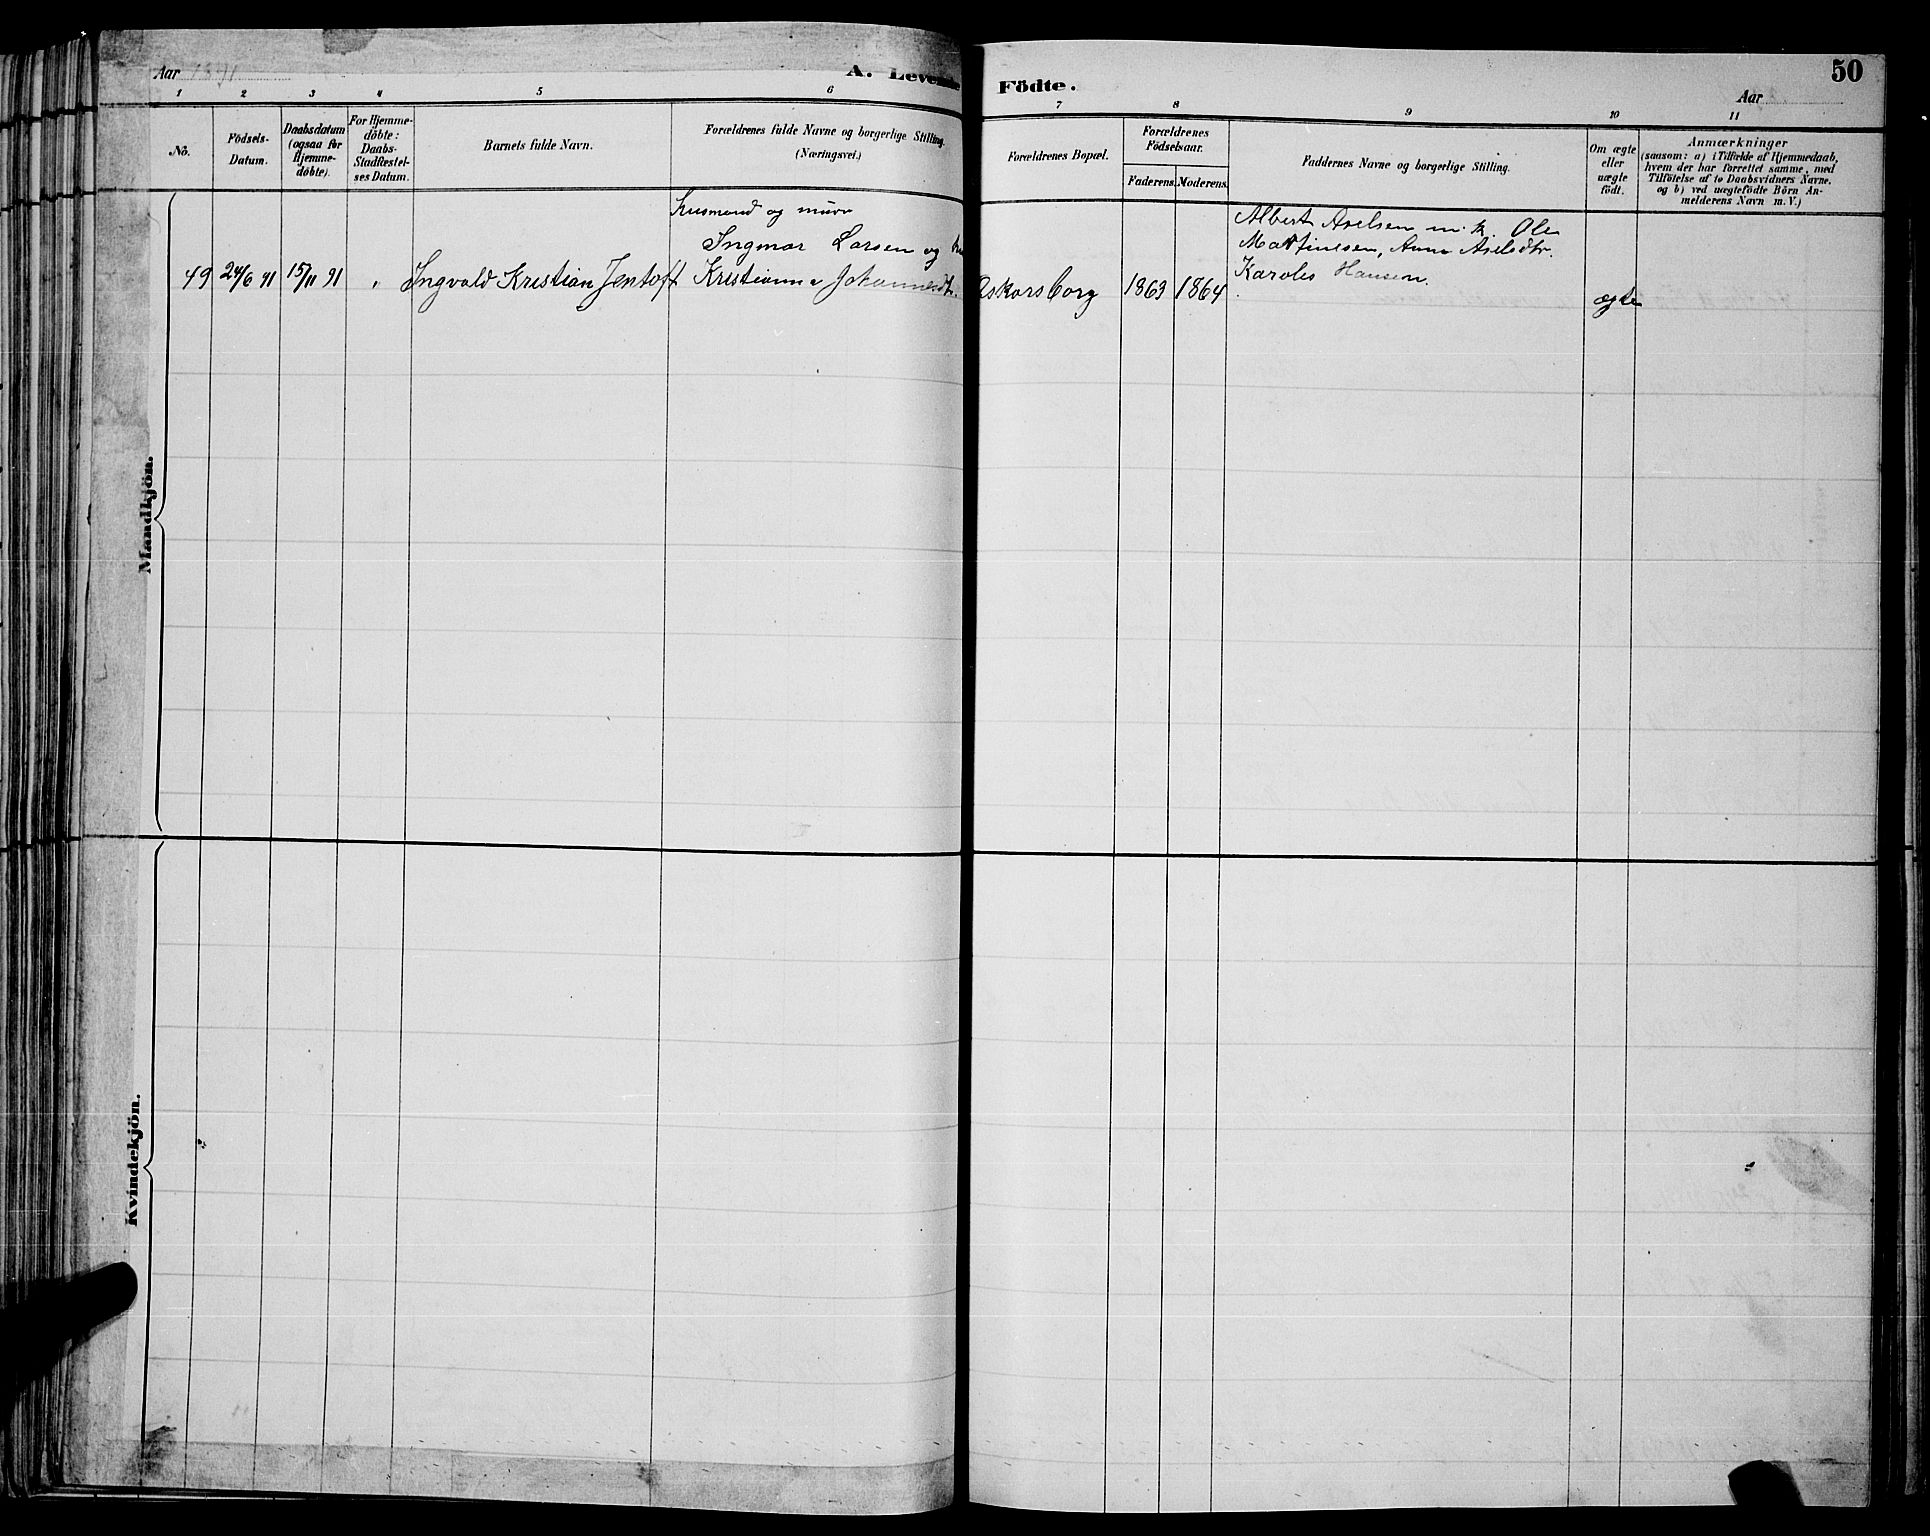 Aar 1891 A. Levende Födte. Aar 50
1 2 3 4 5 6 7 8 9 10 11
No.
Födsels-
Datum.
Daabsdatum
(ogsaa for
Hjemme-
döbte).
For Hjemme-
döbte:
Daabs-
Stadfæstel-
ses Datum.
Barnets fulde Navn.
Forældrenes fulde Navne og borgerlige Stilling.
(Næringsvei.)
Forældrenes Bopæl.
Forældrenes
Födselsaar.
Faderens. Moderens.
Faddernes Navne og borgerlige Stilling.
Om ægte
eller
uægte
födt.
Anmærkninger
(saasom: a) i Tilfælde af Hjemmedaab,
hvem der har forrettet samme, med
Tilföielse af to Daabsvidners Navne.
og b) ved uægtefödte Börn An-
melderens Navn m. V.)
Mandkjön.
49 24/6 91 15/11 91 " Ingvald Kristian Jentoft
Husmand og murer
Ingmar Larsen og
Kristianna Johannesdtr.
Oskarsborg 1863 1864
Albert Axelsen m. k. Ole
Martinesen, Anna Axelsdtr.
Karoles Hansen.
ægte
Kvindekjön.